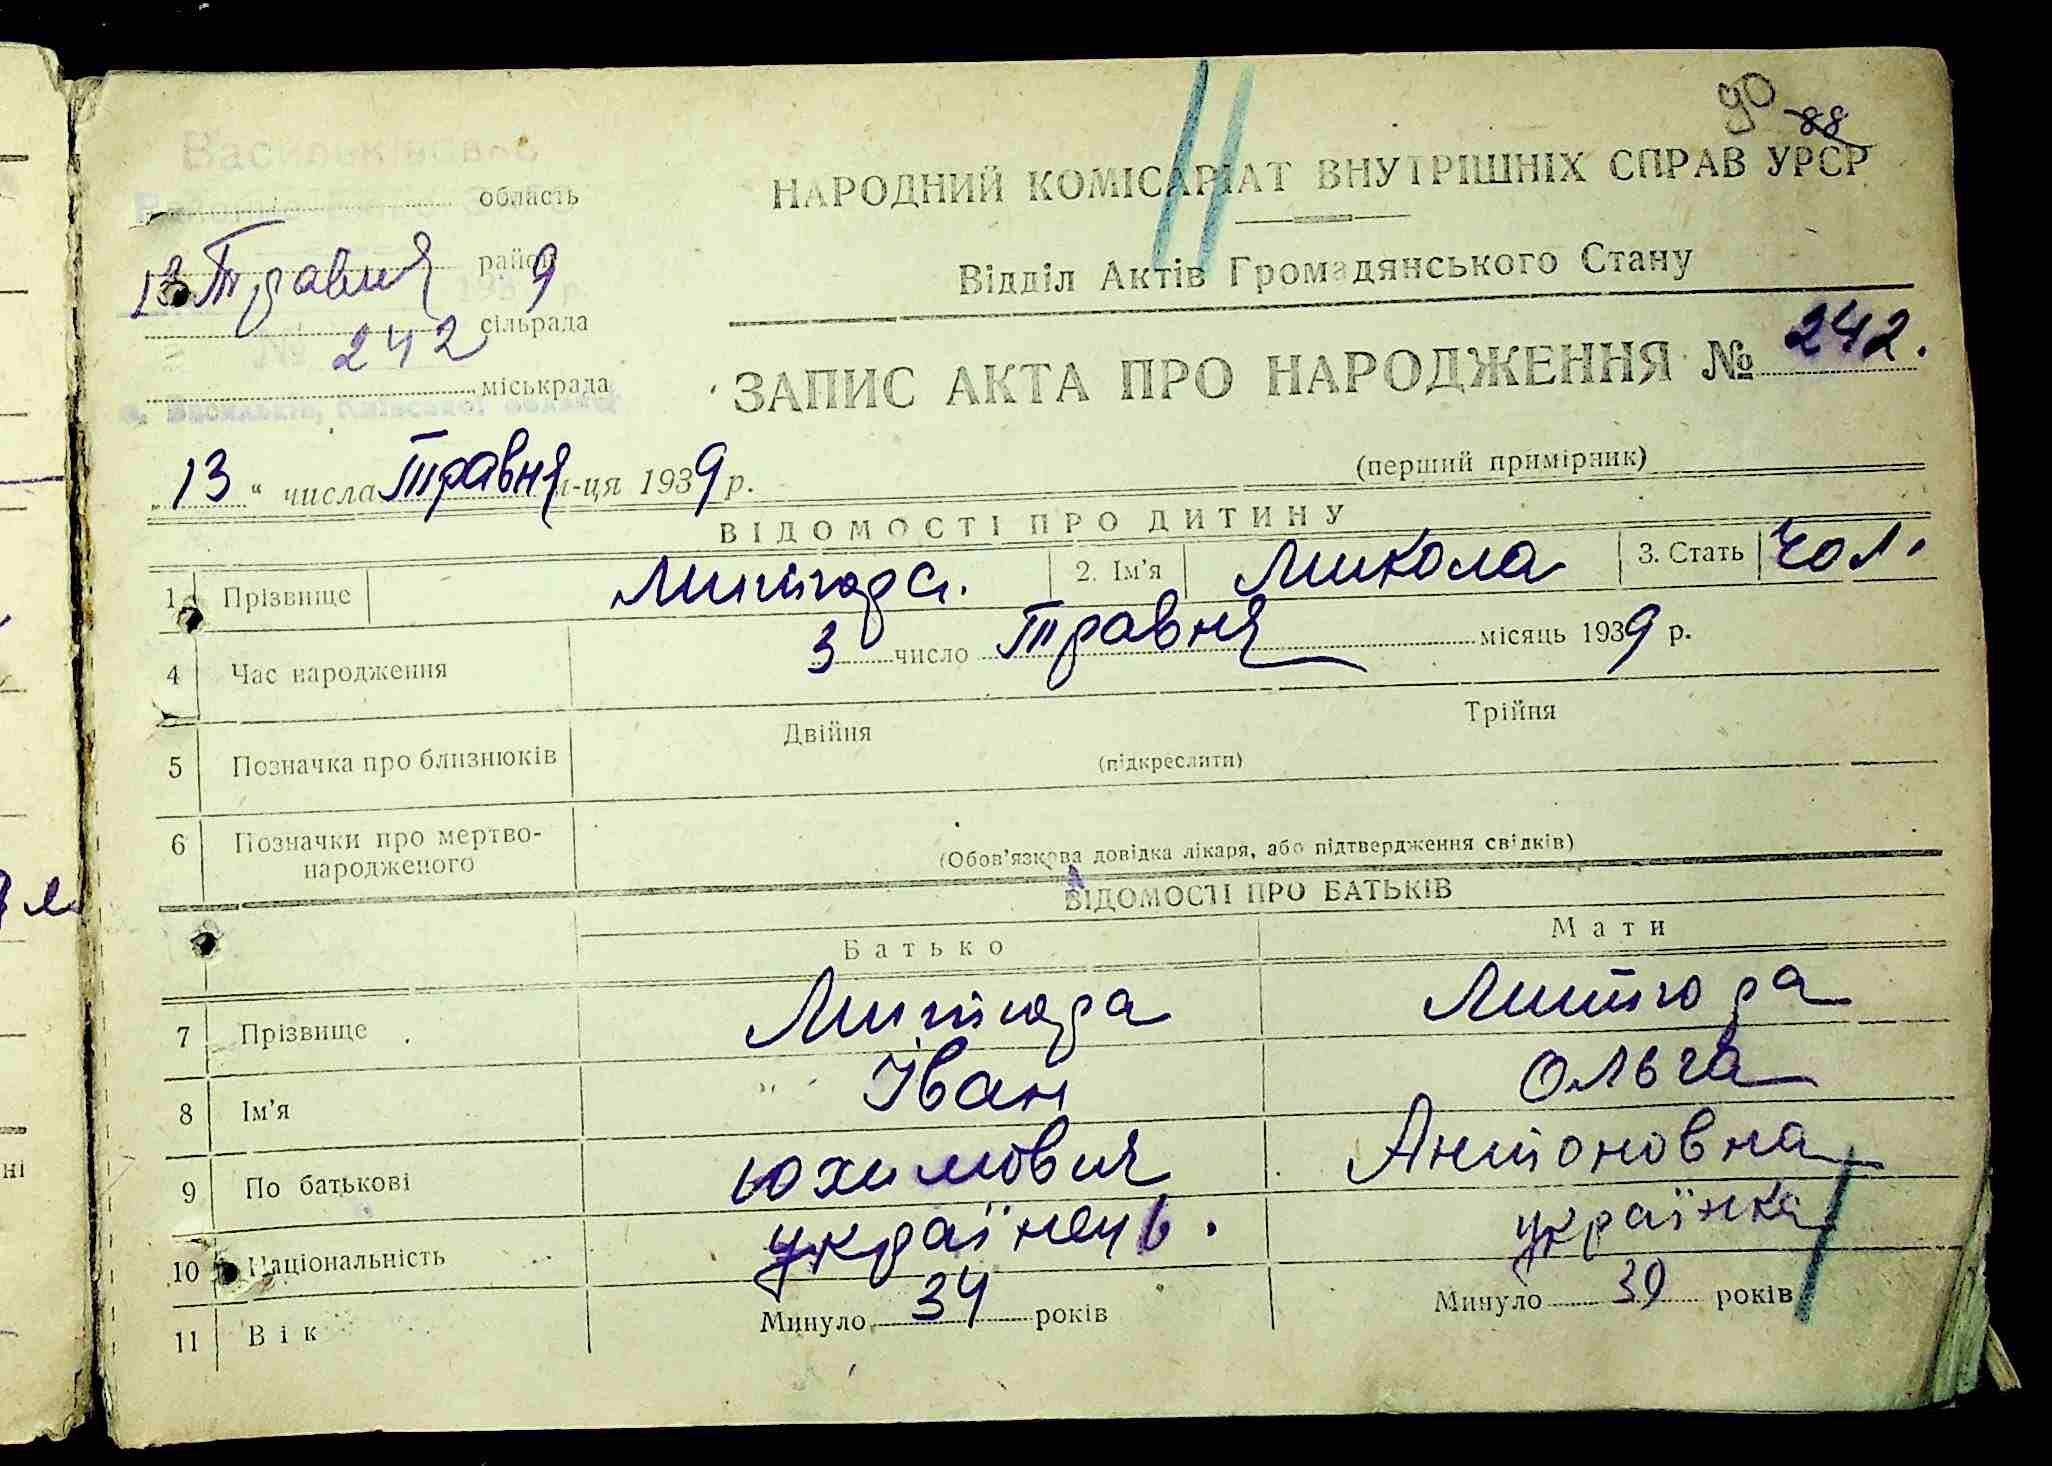 90
88
НАРОДНИЙ КОМІСАРІАТ ВНУТРІШНІХ СПРАВ УРСР
Відділ Актів Громадянського Стану
Васильківське
область
13 Травня район 9
193 р.
242 сільрада
№
міськрада
м. Васильків, Київської області
ЗАПИС АКТА ПРО НАРОДЖЕННЯ № 242.
(перший примірник)
„ 13 “ числа Травня м-ця 1939 р.
ВІДОМОСТІ ПРО ДИТИНУ
1 Прізвище Митюра. 2. Ім’я Микола 3. Стать Чол.
4 Час народження 3 число Травня місяць 1939 р.
5 Позначка про близнюків Двійня Трійня
(підкреслити)
6 Позначки про мертво-
народженого
(Обов’язкова довідка лікаря, або підтвердження свідків)
ВІДОМОСТІ ПРО БАТЬКІВ
Батько Мати
7 Прізвище Митюра Митюра
8 Ім’я Іван Ольга
9 По батькові Юхимович Антоновна
10 Національність українець. українка
11 Вік Минуло 34 років Минуло 39 років
ні